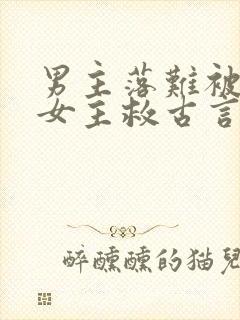 男主落難被
女主救古言
醉醺醺的猫兒